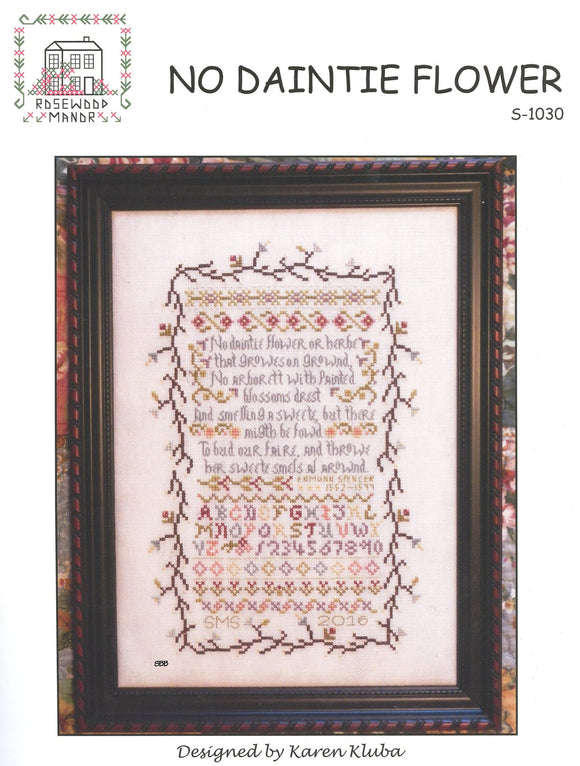 ROSEWOOD
MANOR
NO DAINTIE FLOWER
S-1030
No daintie flower or herbe
that growes on grownd,
No arborett with painted
blossoms drest
And smelling sweete, but there
migth be fowd
To bud out faire, and throwe
her sweete smels al arownd.
EDMUND SPENCER
1552-1599
ABCDEFGHIJKL
MNOPQRSTUVWX
YZ 1234567890
SMS 2016
SBB
Designed by Karen Kluba